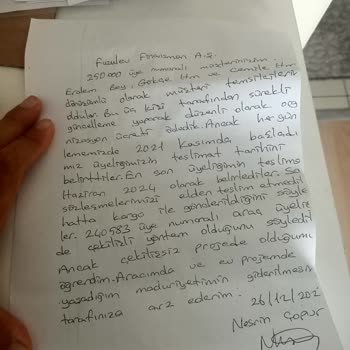 Fuzulev Finansman A.Ş.
250000 üye numaralı müşterinizim
Erdem Bey, Gökçe Hm ve Cemile Hm
dönüşümlü olarak müşteri temsilcilerim
oldular. Bu üç kişi tarafından sürekli
güncelleme yaparak düzenli olarak org
nizasyon ücreti ödedik. Ancak her gün
lememizde 2021 Kasımda başladı
mız üyeliğimizin teslimat tarihini
belirttiler. En son üyeliğimin teslimo
Haziran 2024 olarak belirlediler.
sözleşmelerimizi elden teslim etmedil
hatta kargo ile gönderildiğini söyle
ler. 240583 üye numaralı araç üyelik
de çekilişli yöntem olduğunu söyledil
Ancak çekilişsiz projede olduğumu
öğrendim. Aracımda ve ev projemde
yaşadığım maduriyetimin giderilmesin
tarafınıza arz ederim. 26/12/202
Nesrin Çopur